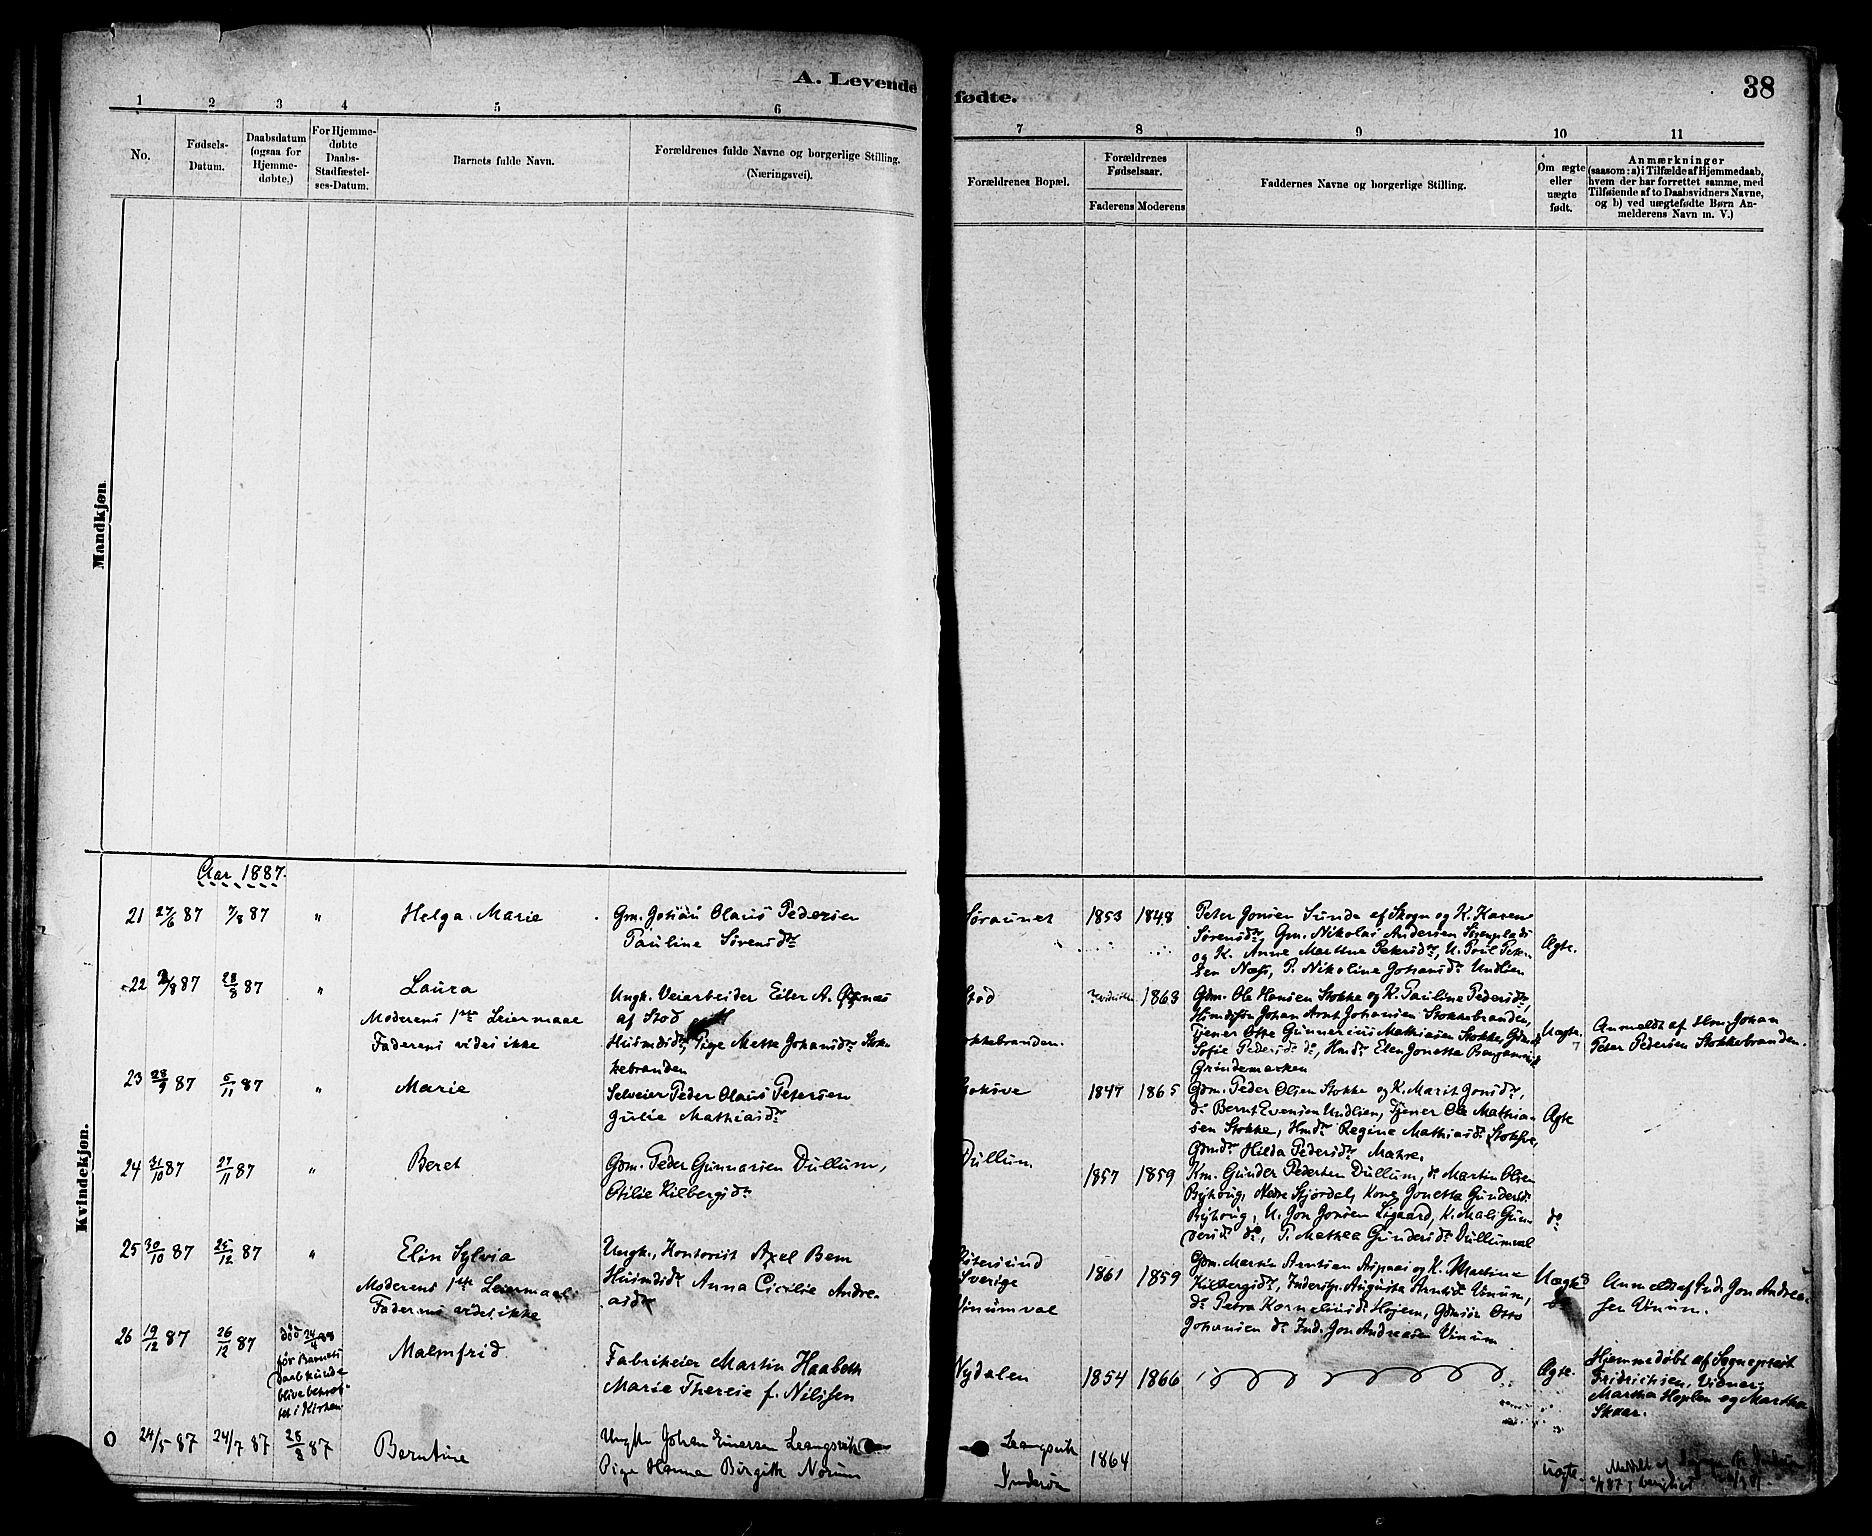 A. Levende fødte.
38
1 2 3 4 5 6 7 8 9 10 11
No.
Fødsels-
Datum.
Daabsdatum
(ogsaa for
Hjemme-
døbte.)
For Hjemme-
døbte
Daabs-
Stadfæstel-
ses-Datum.
Barnets fulde Navn.
Forældrenes fulde Navne og borgerlige Stilling.
(Næringsvei).
Forældrenes Bopæl.
Forældrenes
Fødselsaar.
Faderens Moderens
Faddernes Navne og borgerlige Stilling.
Om ægte
eller
uægte
født.
Anmærkninger
(saasom: a) i Tilfælde af Hjemmedaab,
hvem der har forrettet samme, med
Tilføiende af to Daabsvidners Navne,
og b) ved uægtefødte Børn An-
melderens Navn m. V.)
Mandkjøn
Kvindekjøn.
Aar 1887.
21 27/6 87 7/8 87 " Helga Marie
Gm. Johan Olaus Pedersen
Pauline Sørensdr
Søraunet 1853 1848
Peter Jonsen Sunde af Skogn og K. Karen
Sørensdr, Gm. Nikolai Andersen
og K. Anne Marthe Petersdr, U. Poul Peter-
sen Næss, P. Nikoline Johansdr Undlien
Ægte.
22 /8 87 28/8 87 " Laura
Moderens 1ste Leiermaal
Faderens vides ikke
Ungk. Veiarbeider Eiler A.
af Stod
Husmdsdr, Pige Mette Johansdr Stok-
kebranden
Stod
okkebranden.
1863
Gdm. Ole Hansen Stokke og K. Pauline Pedersdr,
Husmdssøn Johan Arnt Johansen Stokkebranden,
Tjener Gunnerius Mathiasen Stokke, Gdmdr
Sofie Pedersdr do, Hmdr Elen Jonetta Benjaminsdr
Grøndemarken
Uægte
Anmeldt af Hm. Johan
Peter Pedersen Stokkebranden.
23 28/9 87 6/11 87 " Marie
Selveier Peder Olaus Petersen
Julie Mathiasdr
1847 1865
Gdm. Peder Olsen Stokke og K. Marit Jonsdr,
do Bernt Evensen Undlien, Tjener Ole Mathia-
sen Stokke, Hmdr Regine Mathiasdr Stokke,
Gdmdr Hilda Pedersdr Mahre.
Ægte
24 31/10 87 27/11 87 " Beret
Gdm. Peder Gunnarsen Dullum,
Otilie Kilbergsdr
Dullum
1857 1859
Km. Gunder Pedersen Dullum, do Martin Olsen
Byhoug, Nedre Stjørdal, Kone Jonetta Gundersdr
Byhoug, U. Jon Jonsen Ligaard, K. Mali Gun-
dersdr do, P. Mathea Gundersdr Dullumval
do
25 30/10 87 25/12 87 " Elin Sylvia
Moderens 1ste Leiermaal
Faderens vides ikke
Ungk., Kontorist Axel Bem
Husmdsdr Anna Cicilie Andre-
asdr
Østersund
Sverige
Vinumval
1861 1859
Gdm. Martin Arntsen og K. Martine
Kilbergsdr, Inderstp. Augusta Arntsdr Vinum,
do Petra Kornelius dr Hojem, Gdmsøn Otto
Johansen do Ind. Jon Andreasen Vinum
Uægte
Anmeldt af Ind. Jon Andrea-
sen Vinum.
26 19/12 87 26/12 87 død 24/4 88
før Barnets
Daab kunde
blive bekræf-
tet i Kirken
Malmfrid
Fabrikeier Martin Haabeth
Marie Therese f. Nilssen
Nydalen
1854 1866
Ægte.
Hjemmedøbt af Sogneprest
Fridrichsen, Vidner
Martha Hoplen og Martha
Skaar.
0 24/5 87 24/7 87 28/8 87 Berntine
Ungkr Johan Einersen Leangsvik
Pige Hanna Birgitte Norum
Leangsvik
Inderøn
1864
Uægte.
Meddelt af